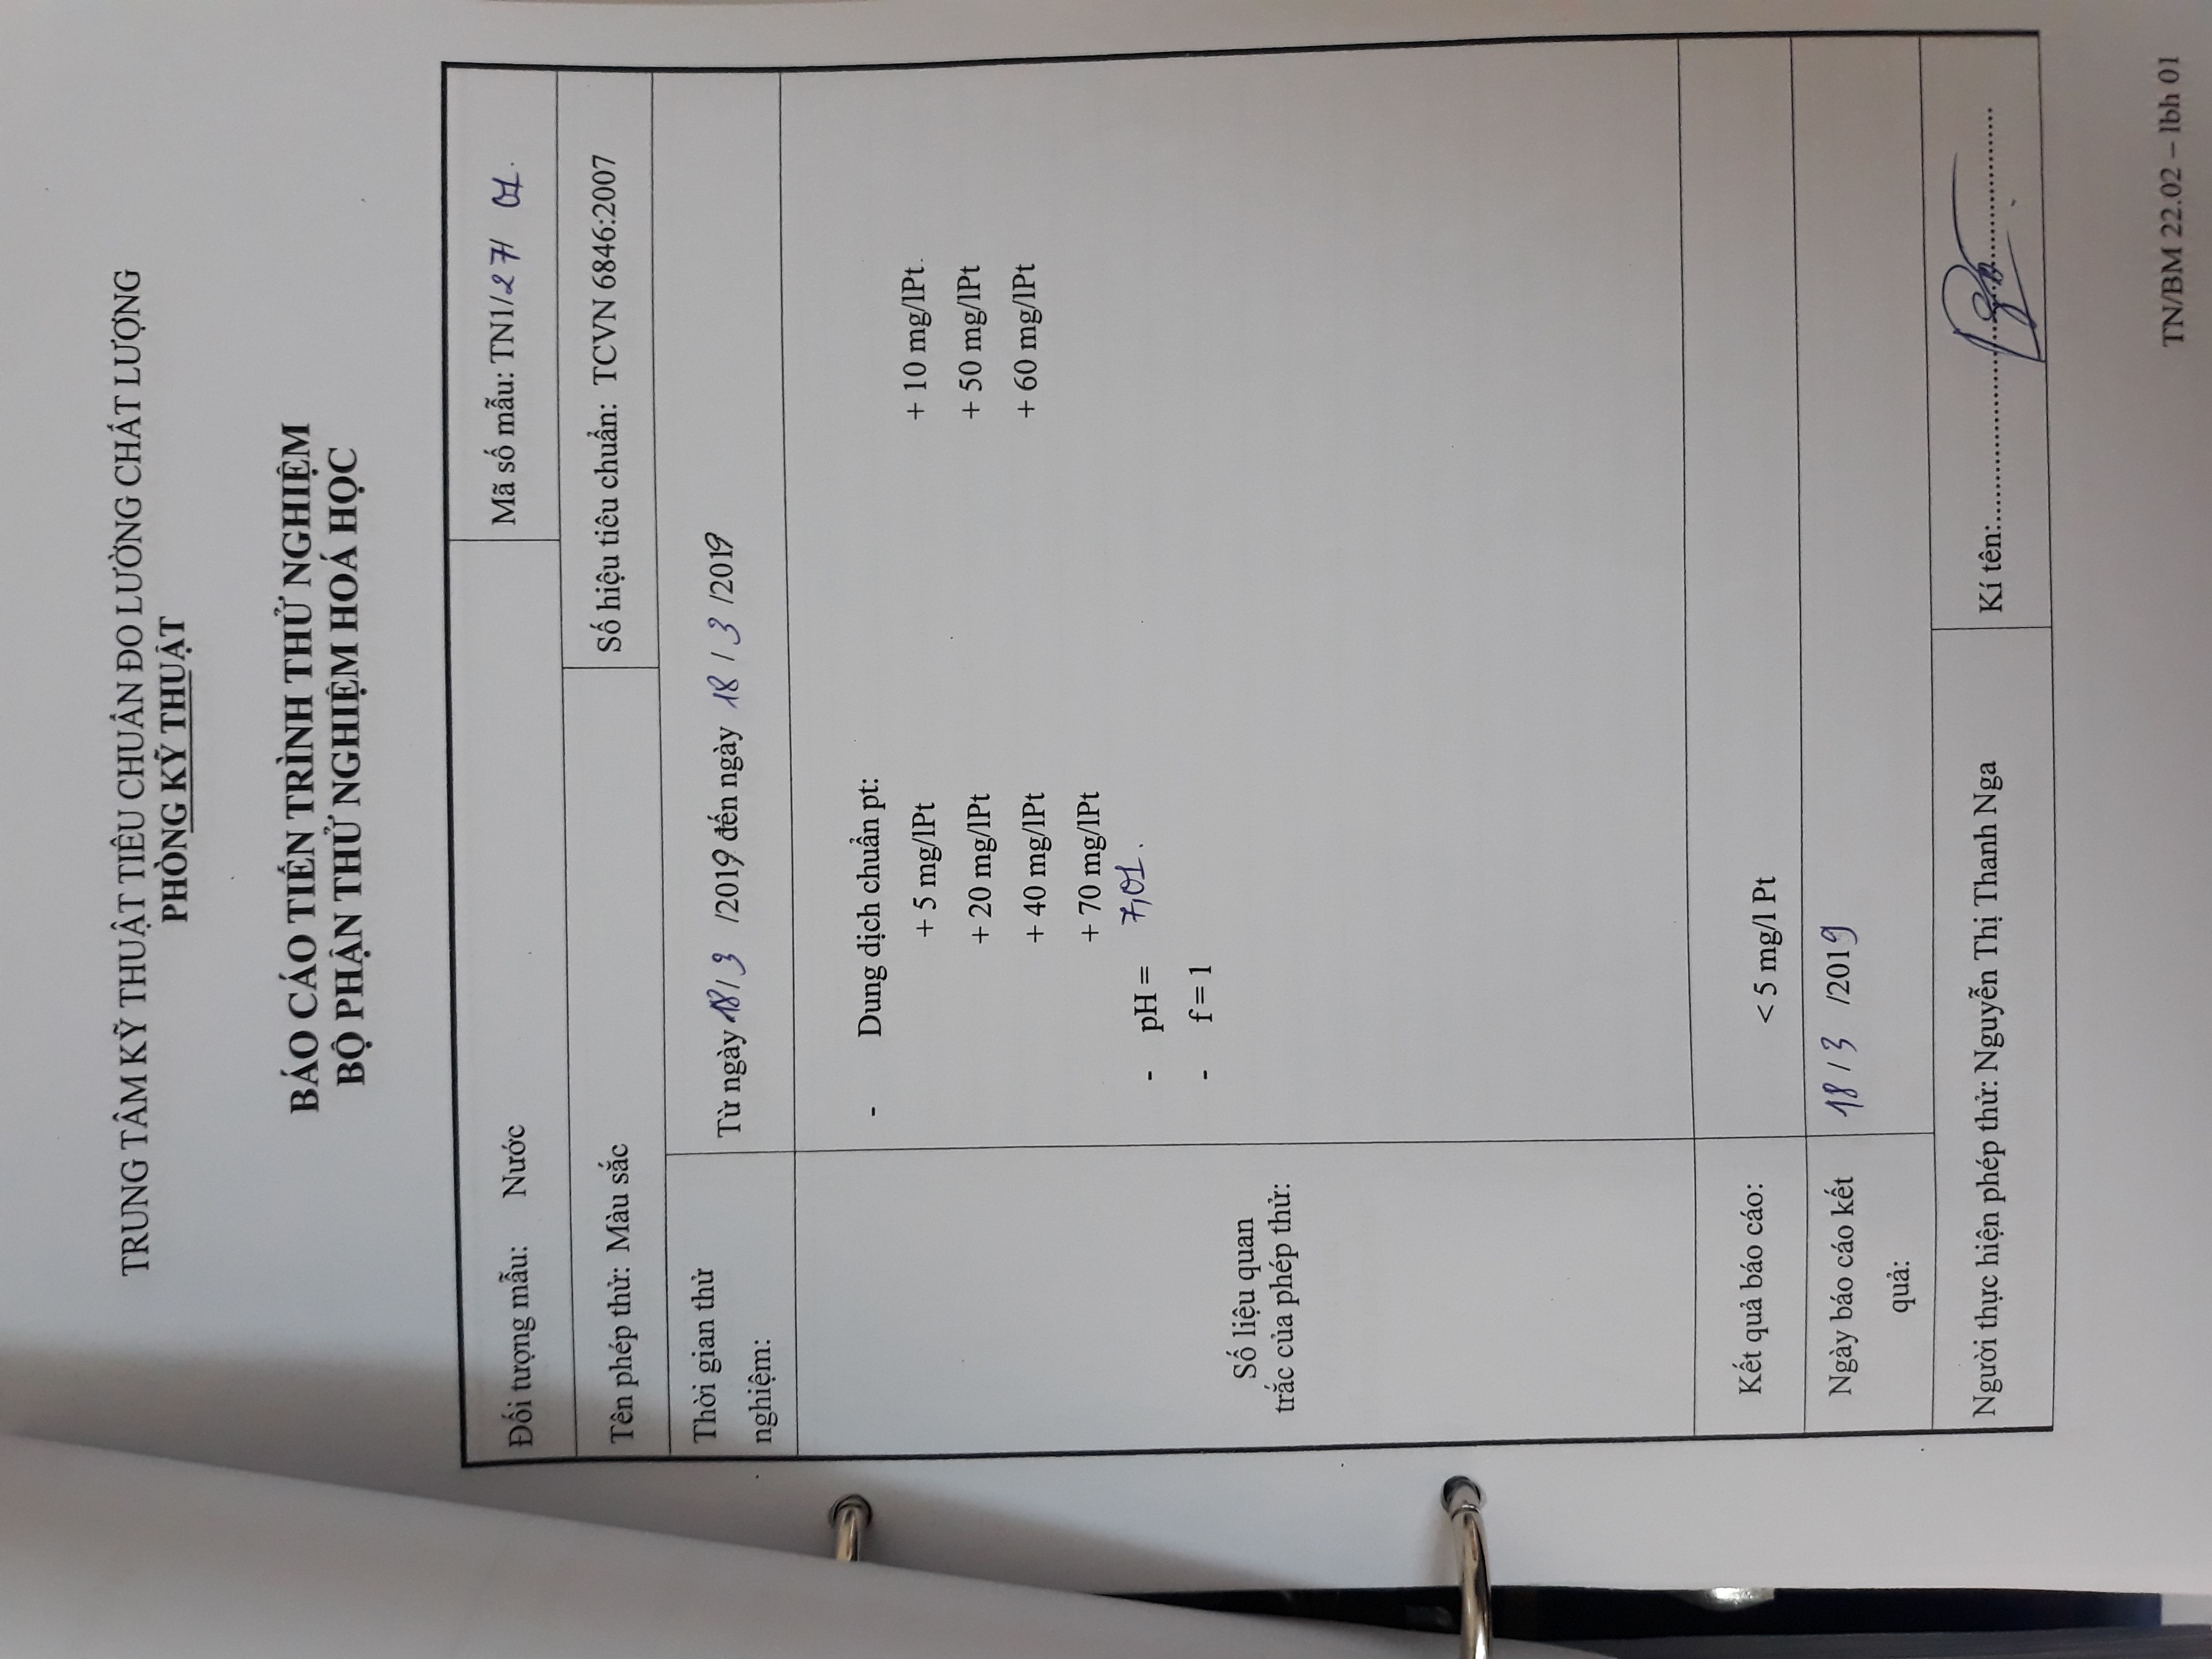 TRUNG TÂM KỸ THUẬT TIÊU CHUẨN ĐO LƯỜNG CHẤT LƯỢNG
PHÒNG KỸ THUẬT
BÁO CÁO TIẾN TRÌNH THỬ NGHIỆM
BỘ PHẬN THỬ NGHIỆM HOÁ HỌC
Đối tượng mẫu: Nước
Mã số mẫu: TN1/27/ 01.
Tên phép thử: Màu sắc
Số hiệu tiêu chuẩn: TCVN 6846:2007
Thời gian thử
nghiệm:
Từ ngày 18/ 3 /2019 đến ngày 18 / 3 /2019
- Dung dịch chuẩn pt:
+ 5 mg/lPt + 10 mg/lPt
+ 20 mg/lPt + 50 mg/lPt
+ 40 mg/lPt + 60 mg/lPt
+ 70 mg/lPt
- pH = 7,01.
- f = 1
Số liệu quan
trắc của phép thử:
Kết quả báo cáo:
< 5 mg/l Pt
Ngày báo cáo kết
quả:
18 / 3 /2019
Người thực hiện phép thử: Nguyễn Thị Thanh Nga
Kí tên:
TN/BM 22.02 – lbh 01